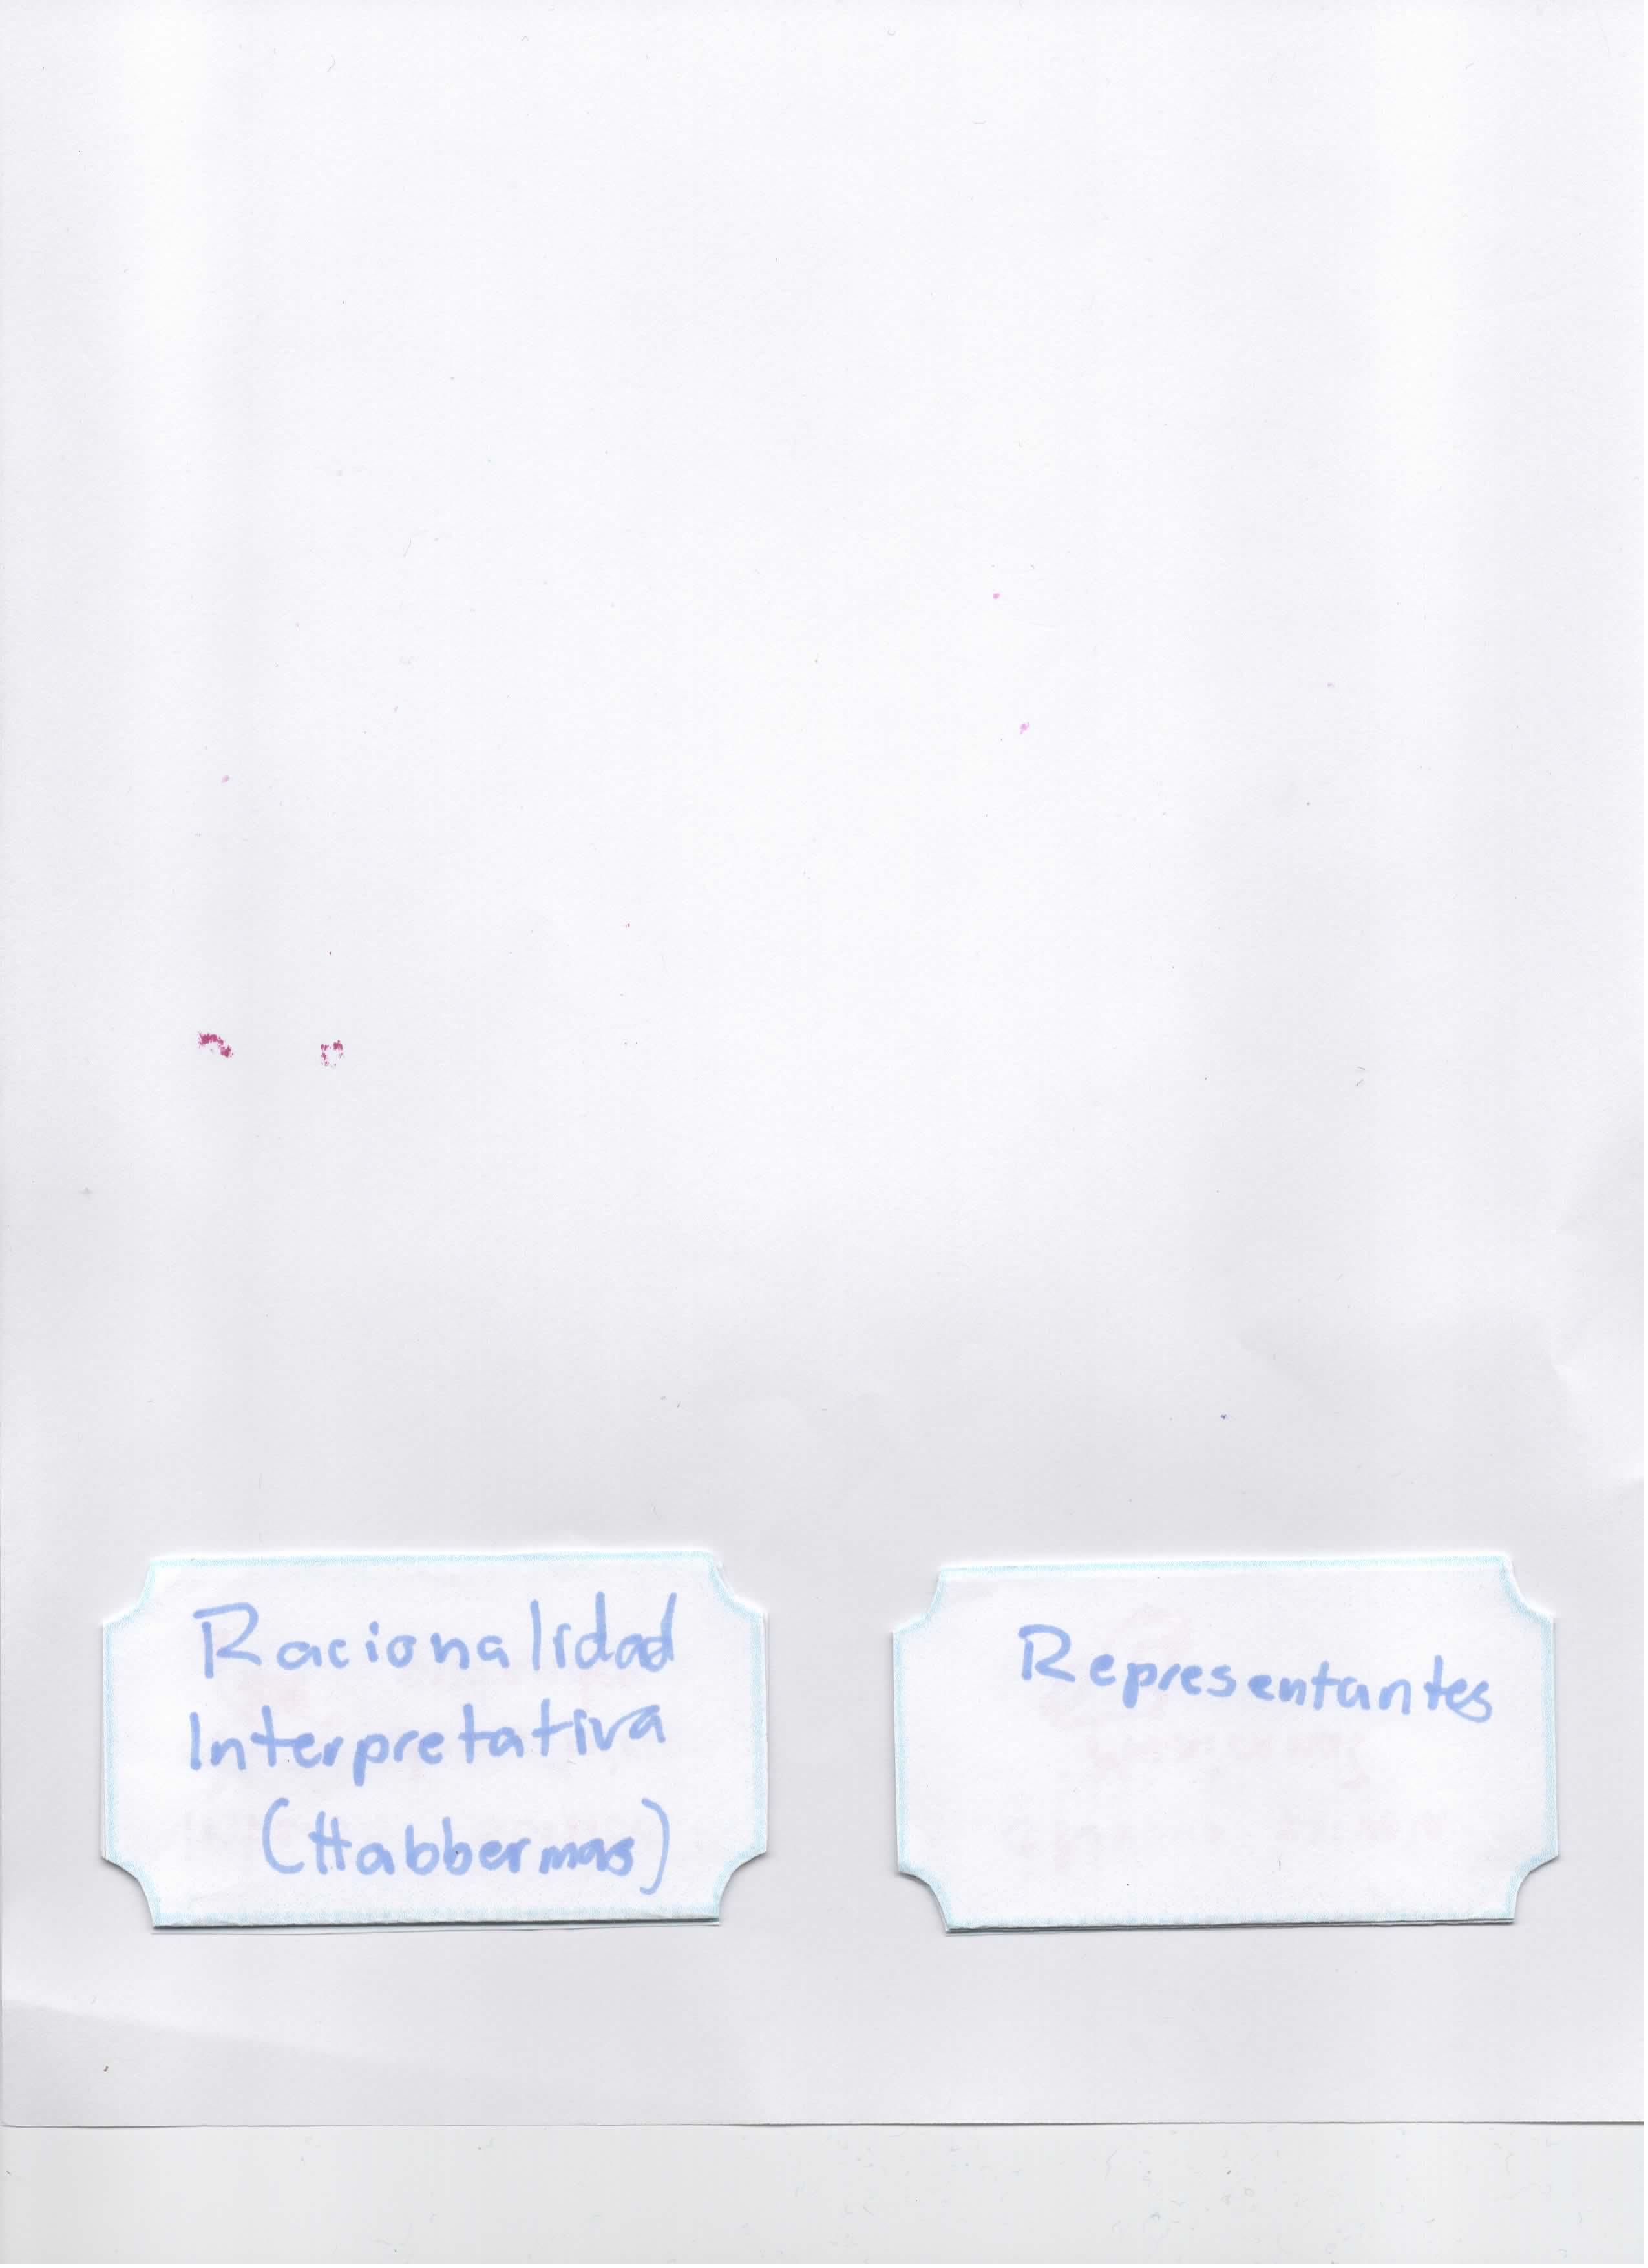 Racionalidad
Interpretativa
(Habbermas)
Representantes